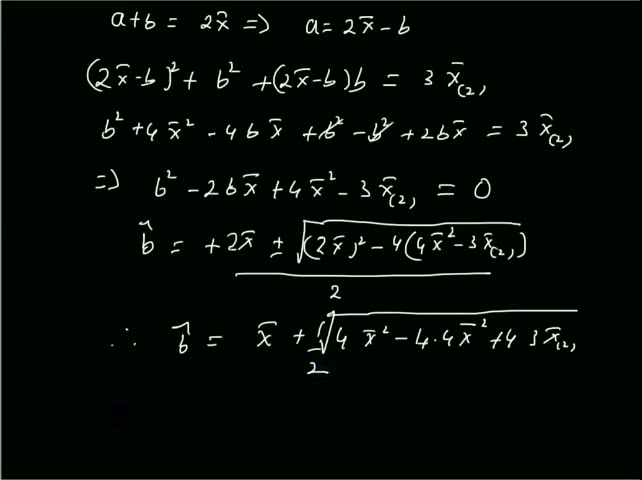 a+b = 2x̄ => a = 2x̄ - b
(2x̄-b)² + b² + (2x̄-b)b = 3 x̄₍₂₎
b² + 4x̄² - 4bx̄ + b² - b² + 2bx̄ = 3 x̄₍₂₎
=> b² - 2bx̄ + 4x̄² - 3x̄₍₂₎ = 0
b̂ = +2x̄ ± √((2x̄)² - 4(4x̄² - 3x̄₍₂₎))
2
∴ b̂ = x̄ + 1/2 √(4x̄² - 4.4x̄² + 4 3x̄₍₂₎